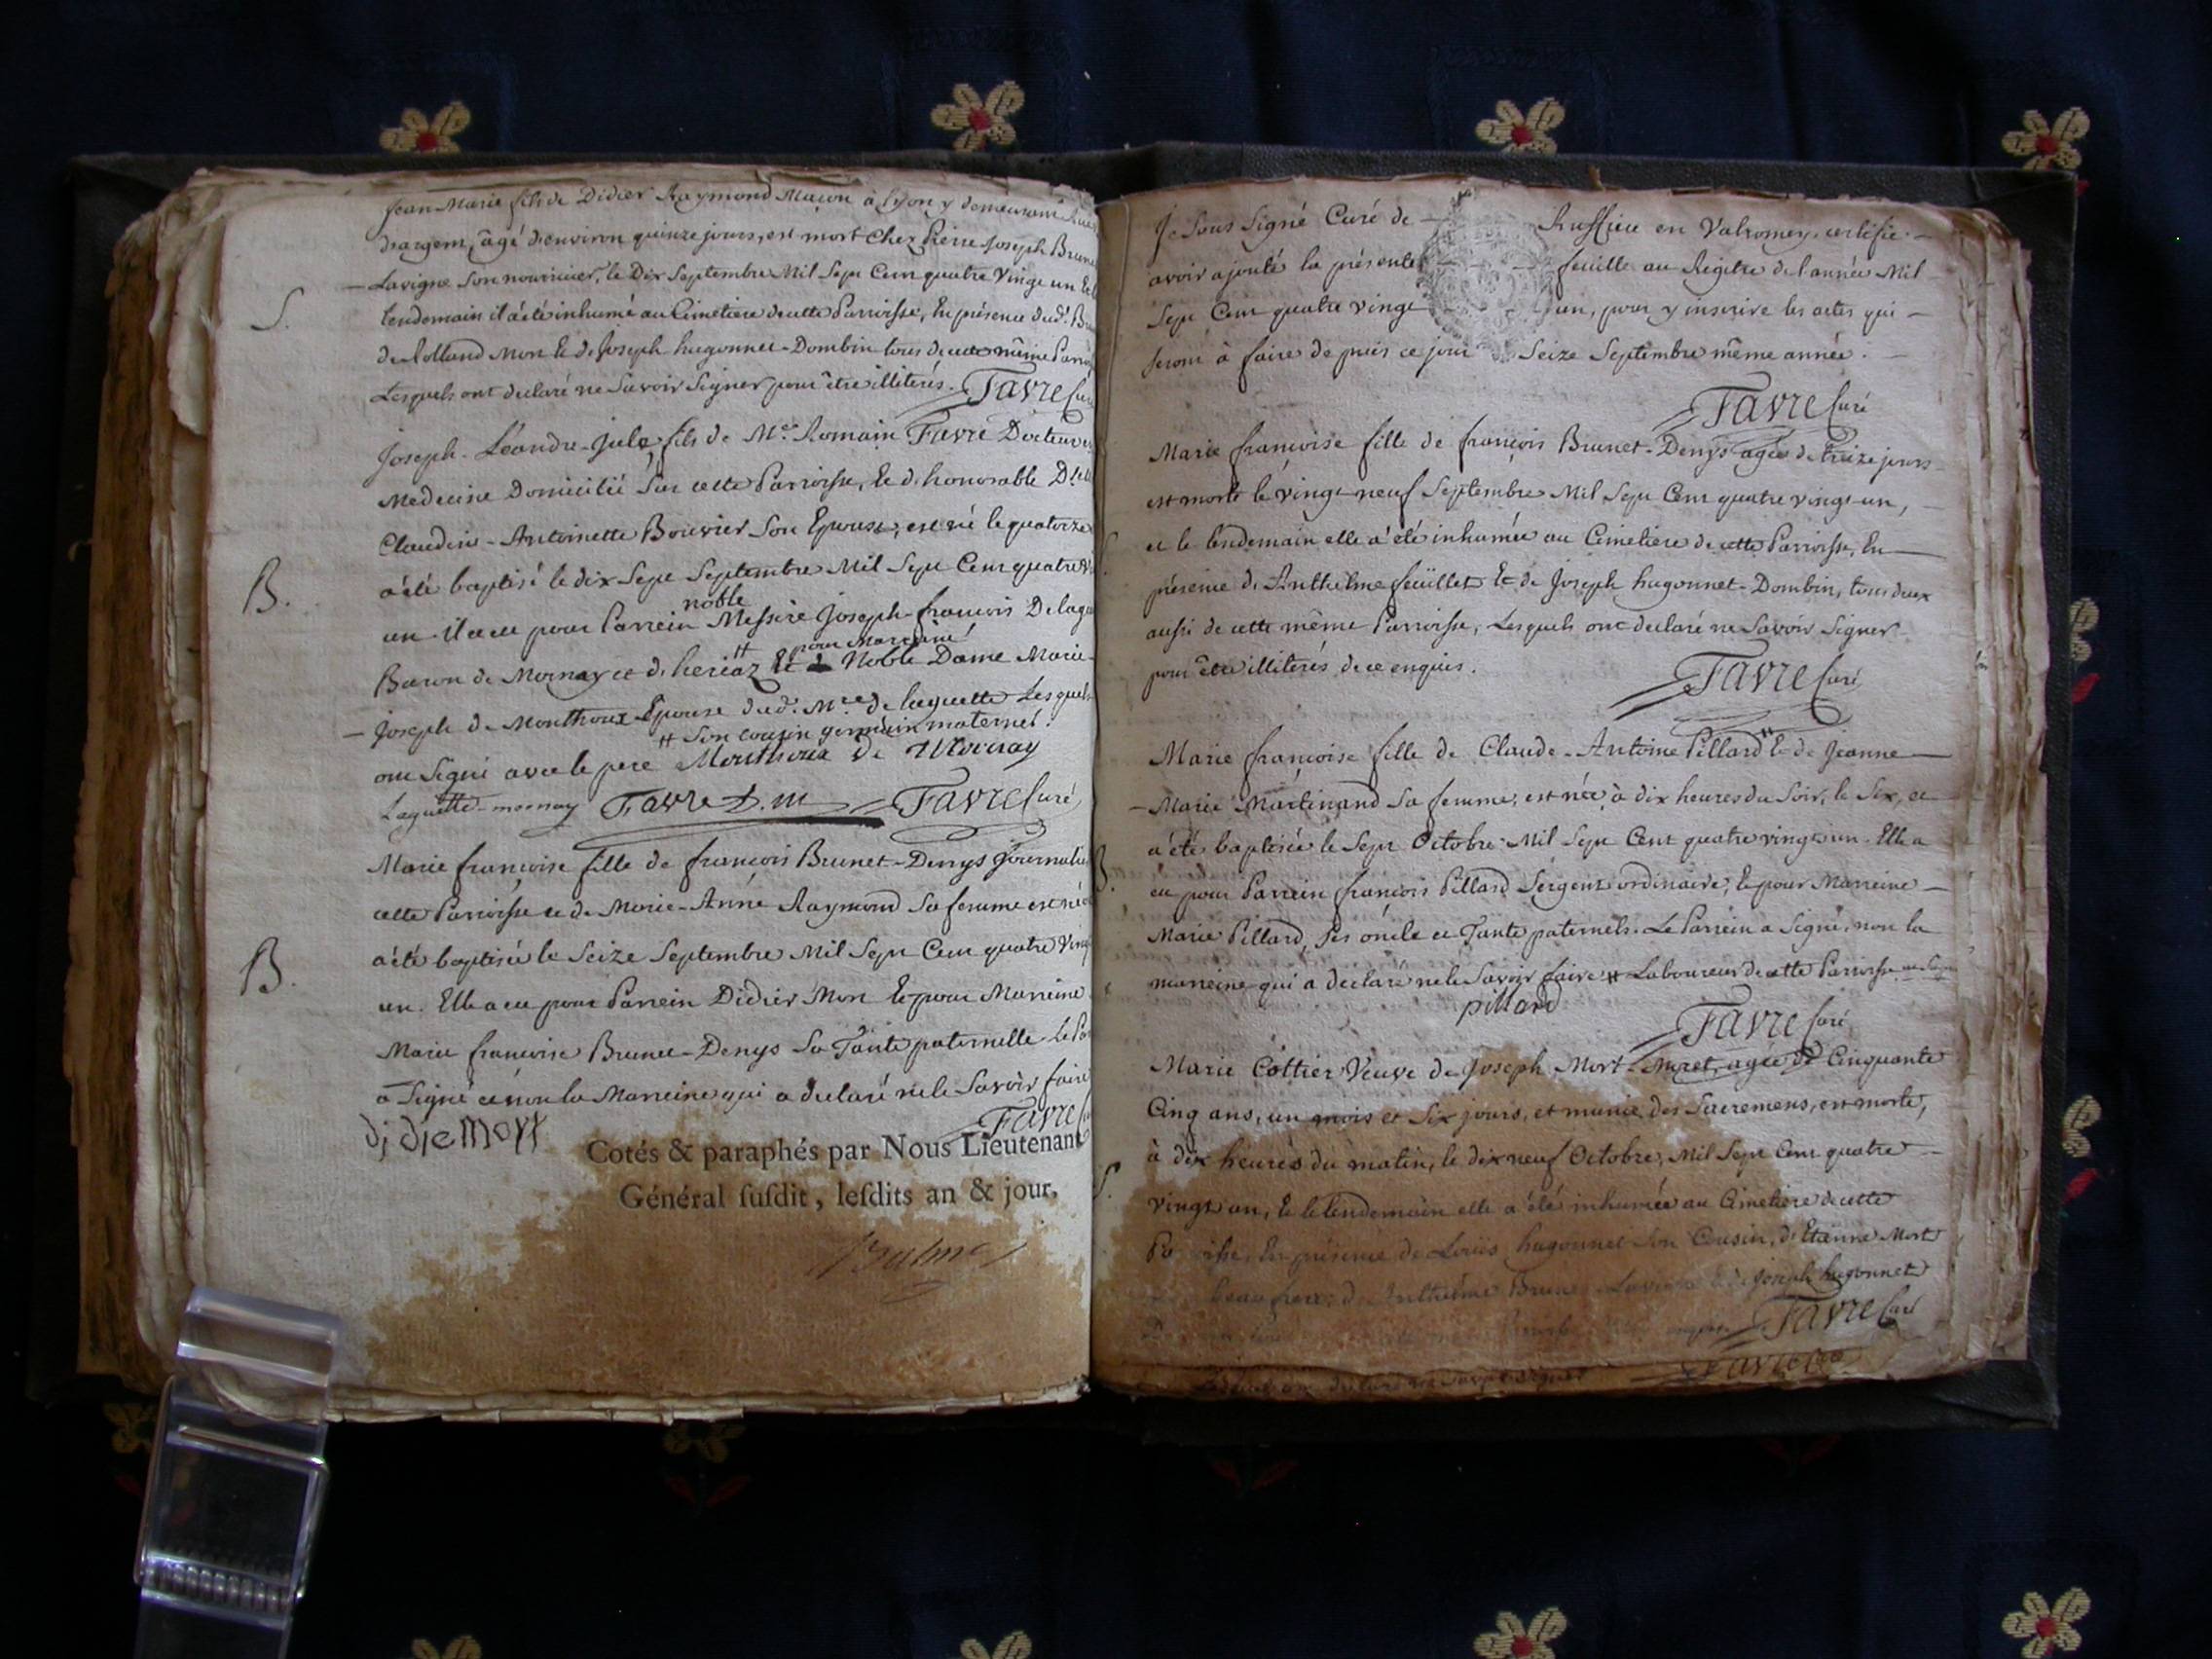 Jean Marie fils de Didier Raymond Maçon à Lyon y demeurant
d'argem, âgé d'environ quinze jours, est mort Chez Pierre Joseph Brune
S.
Lavigne Son nourricier, le Dix Septembre Mil Sept Cent quatre Vingt un Et l
lendemain il a été inhumé au Cimetiere de cette Parroisse, En présence dud.
de Rolland Mort Et de Joseph hugonnet-Dombin tous de cette même Parroi
Lesquels ont declaré ne Savoir Signer pour être illiterés. FAVRE Curé
Joseph-Léandre-Jule, fils de Mre Romain Favre Docteur
Medecine Domicilié Sur cette Parroisse, Et d'honorable Dlle
Claudine-Antoinette Bouvier Son Epouse, est né le quatorze
B.
a été baptisé le dix Sept Septembre Mil Sept Cent quatre V
noble
un. il a eu pour Parrein Messire Joseph-françois Delagu
pour Marreine
Baron de Mornay et d'heriaz # Et Noble Dame Marie-
Joseph de Monthoux Epouse dud. Mre de laguette Lesquels
# Son cousin germain maternel.
ont Signé avec le pere Monthoux De Mornay
Laguette-mornay Favre D. m FAVRE Curé
Marie françoise fille de françois Brunet-Denys journalie
cette Parroisse et de Marie-Anne Raymond Sa femme est née
B.
a été baptisée le Seize Septembre Mil Sept Cent quatre Ving
un. Elle a eu pour Parrein Didier Mort Et pour Marreine
Marie françoise Brunet-Denys Sa Tante paternelle. Le Pa
a Signé et non la Marreine qui a declaré ne le Savoir faire
didie Mort FAVRE
Cotés & paraphés par Nous Lieutenant
Général susdit, lesdits an & jour.
Je Sous Signé Curé de Ruffieu en Valromey, certifie
avoir ajouté la présente feüille au Regitre de l'année Mil
Sept Cent quatre vingt un, pour y inscrire les actes qui
seront à faire depuis ce jour Seize Septembre même année.
FAVRE Curé
Marie françoise fille de françois Brunet-Denys agée de treize jours
est morte le vingt neuf Septembre Mil Sept Cent quatre vingt-un,
S.
et le lendemain elle a été inhumée au Cimetiere de cette Parroisse, En
présence d'Anthelme feüillet Et de Joseph hugonnet-Dombin, tous deux
aussi de cette même Parroisse, Lesquels ont declaré ne Savoir Signer
pour être illiterés de ce enquis.
FAVRE Curé
Marie françoise fille de Claude-Antoine Pillard # Et de Jeanne
Marie Martinand Sa femme, est née, à dix heures du Soir, le Six, et
a été baptisée le Sept Octobre Mil Sept Cent quatre vingt un. Elle a
B.
eu pour Parrein françois Pillard Sergent ordinaire, Et pour Marreine
Marie Pillard, Ses oncle et Tante paternels. Le Parrein a Signé, non la
marreine qui a declaré ne le Savoir faire # Laboureur de cette Parroisse
pillard
FAVRE Curé
Marie Cottier Veuve de Joseph Mort-Muret, agée de Cinquante
Cinq ans, un mois et Six jours, et munie des Sacremens, est morte,
à dix heures du matin, le dix neuf Octobre, Mil Sept Cent quatre
S.
vingt un, Et le lendemain elle a été inhumée au Cimetiere de cette
Parroisse, En présence de Loüis hugonnet Son Cousin, d'Etienne Mort
beaufrere, d'Anthelme Brunet Lavigne Et de Joseph hugonnet
FAVRE Curé
Lesquels ont declaré ne Savoir Signer FAVRE